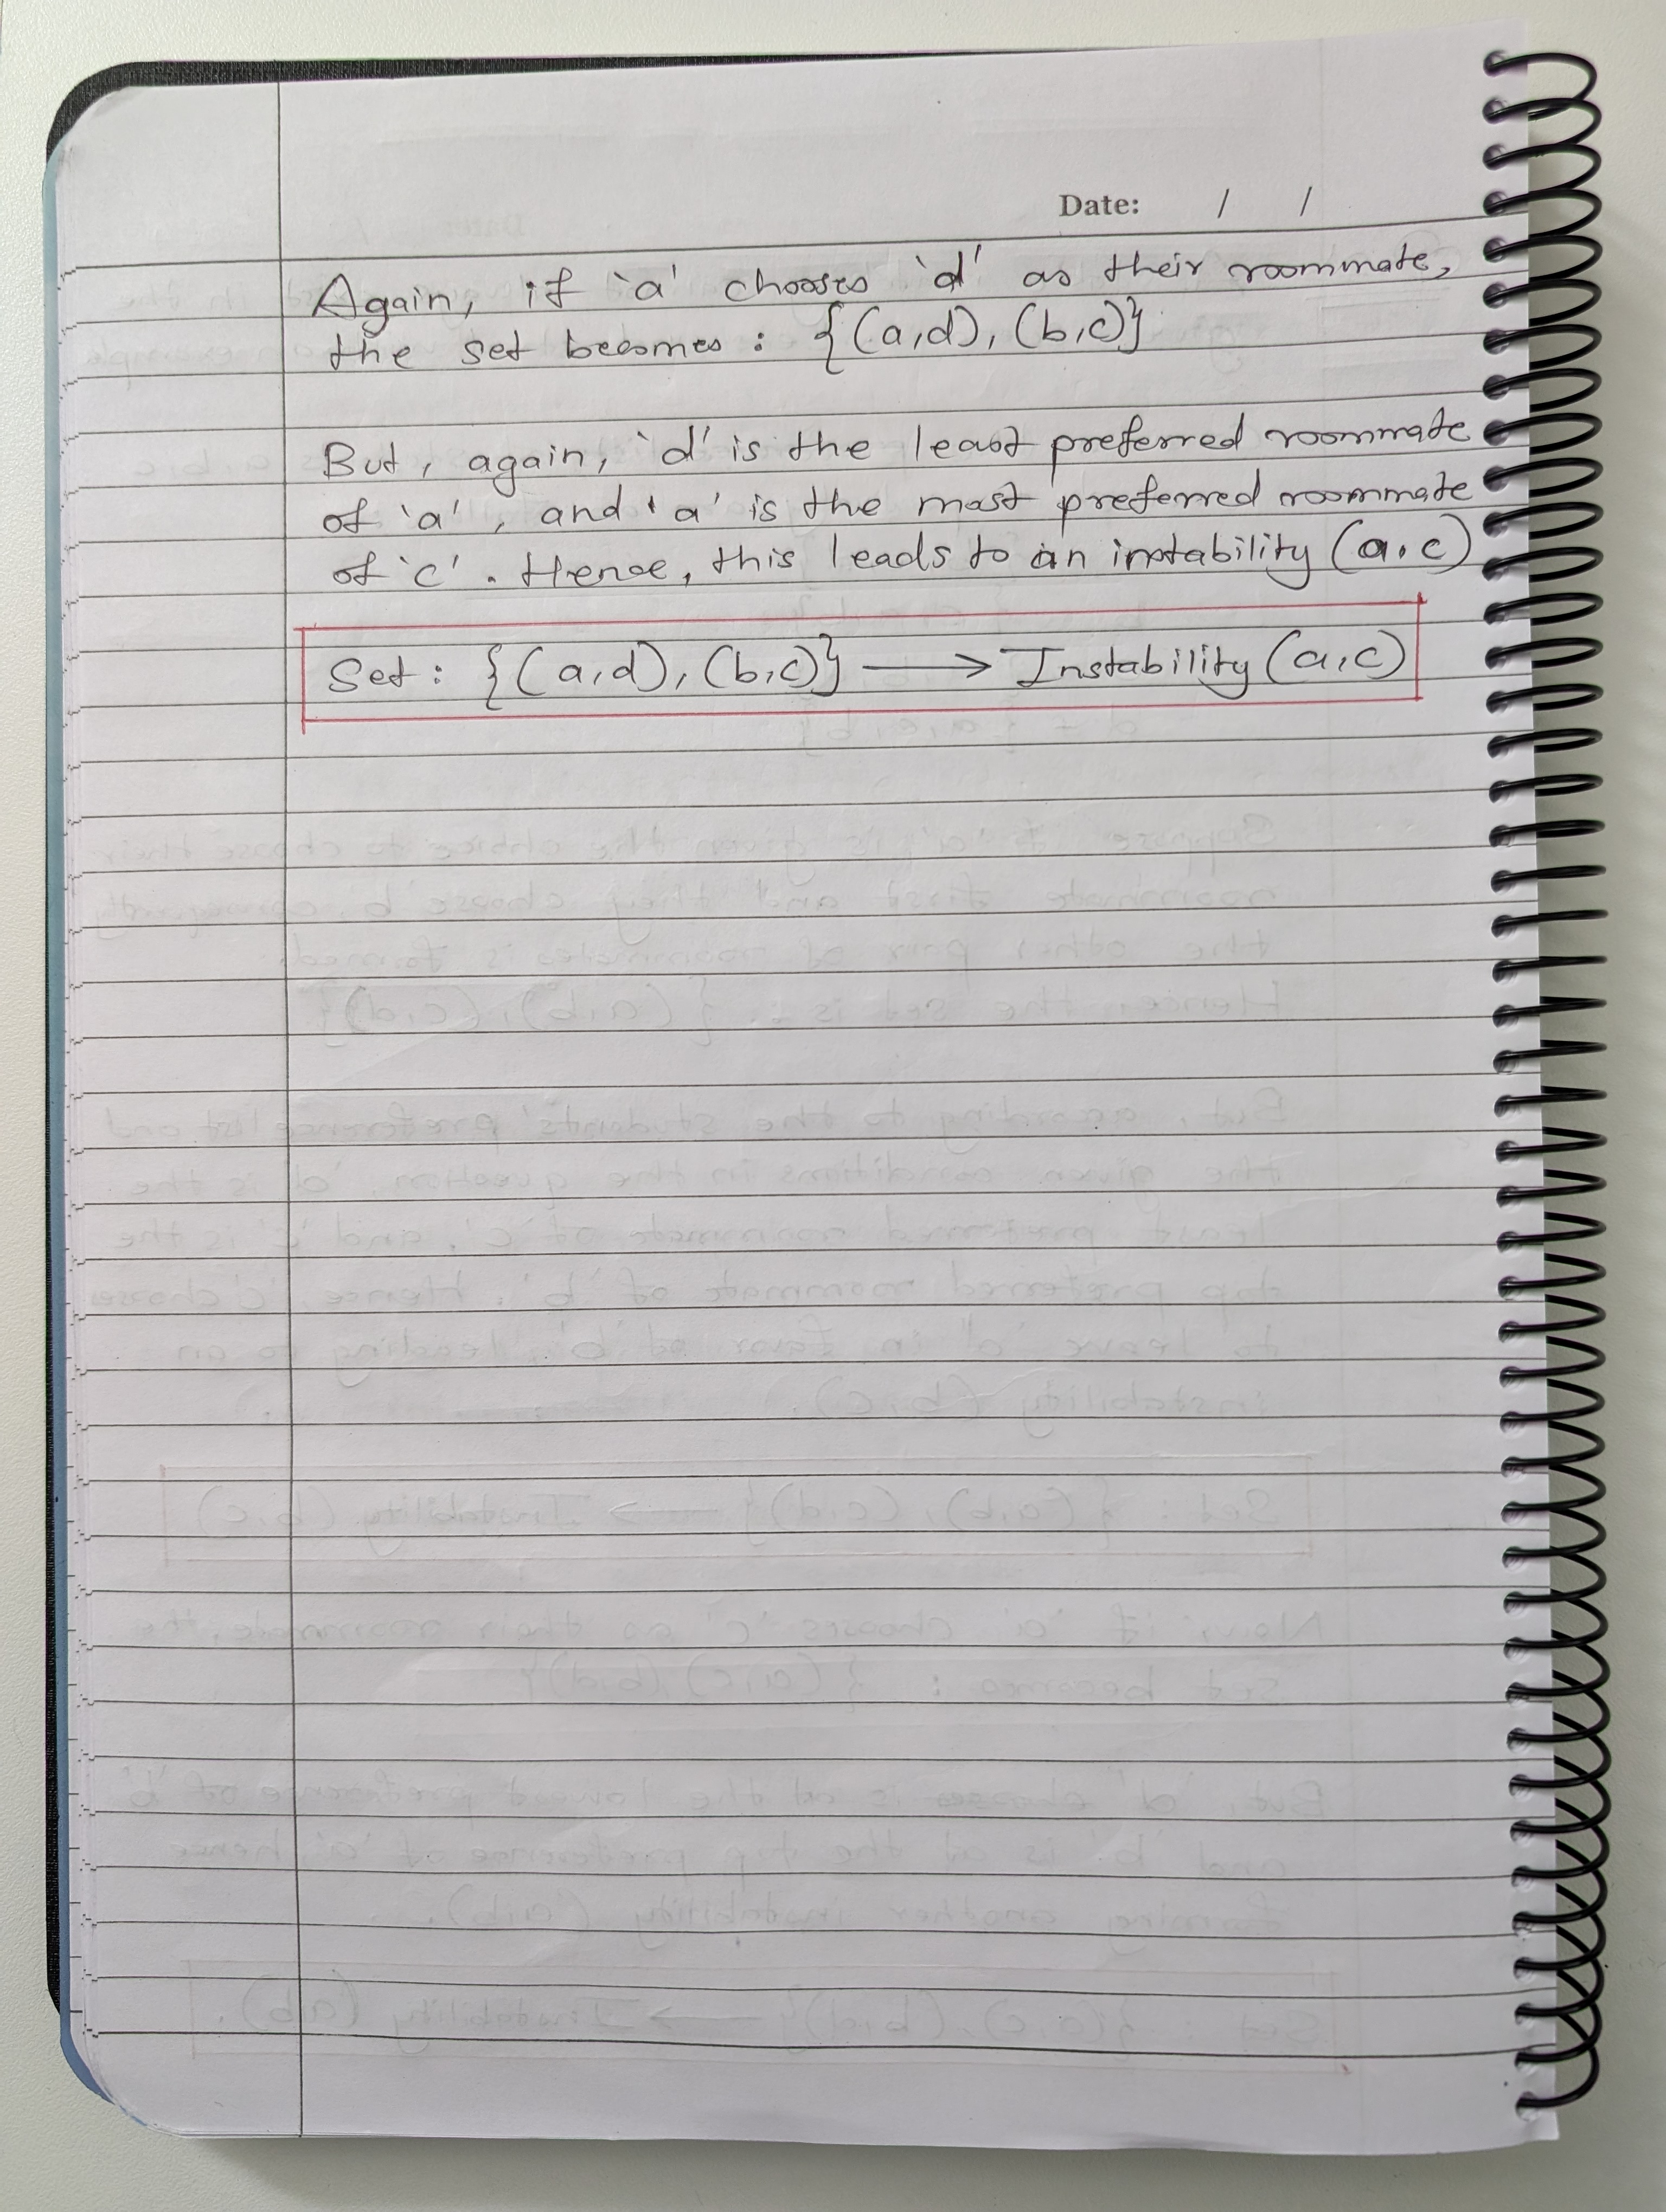 Date: / /
Again, if 'a' chooses 'd' as their roommate,
the set becomes : {(a,d), (b,c)}
But, again, 'd' is the least preferred roommate
of 'a', and 'a' is the most preferred roommate
of 'c'. Hence, this leads to an instability (a,c)
Set : {(a,d), (b,c)} ⟶ Instability (a,c)